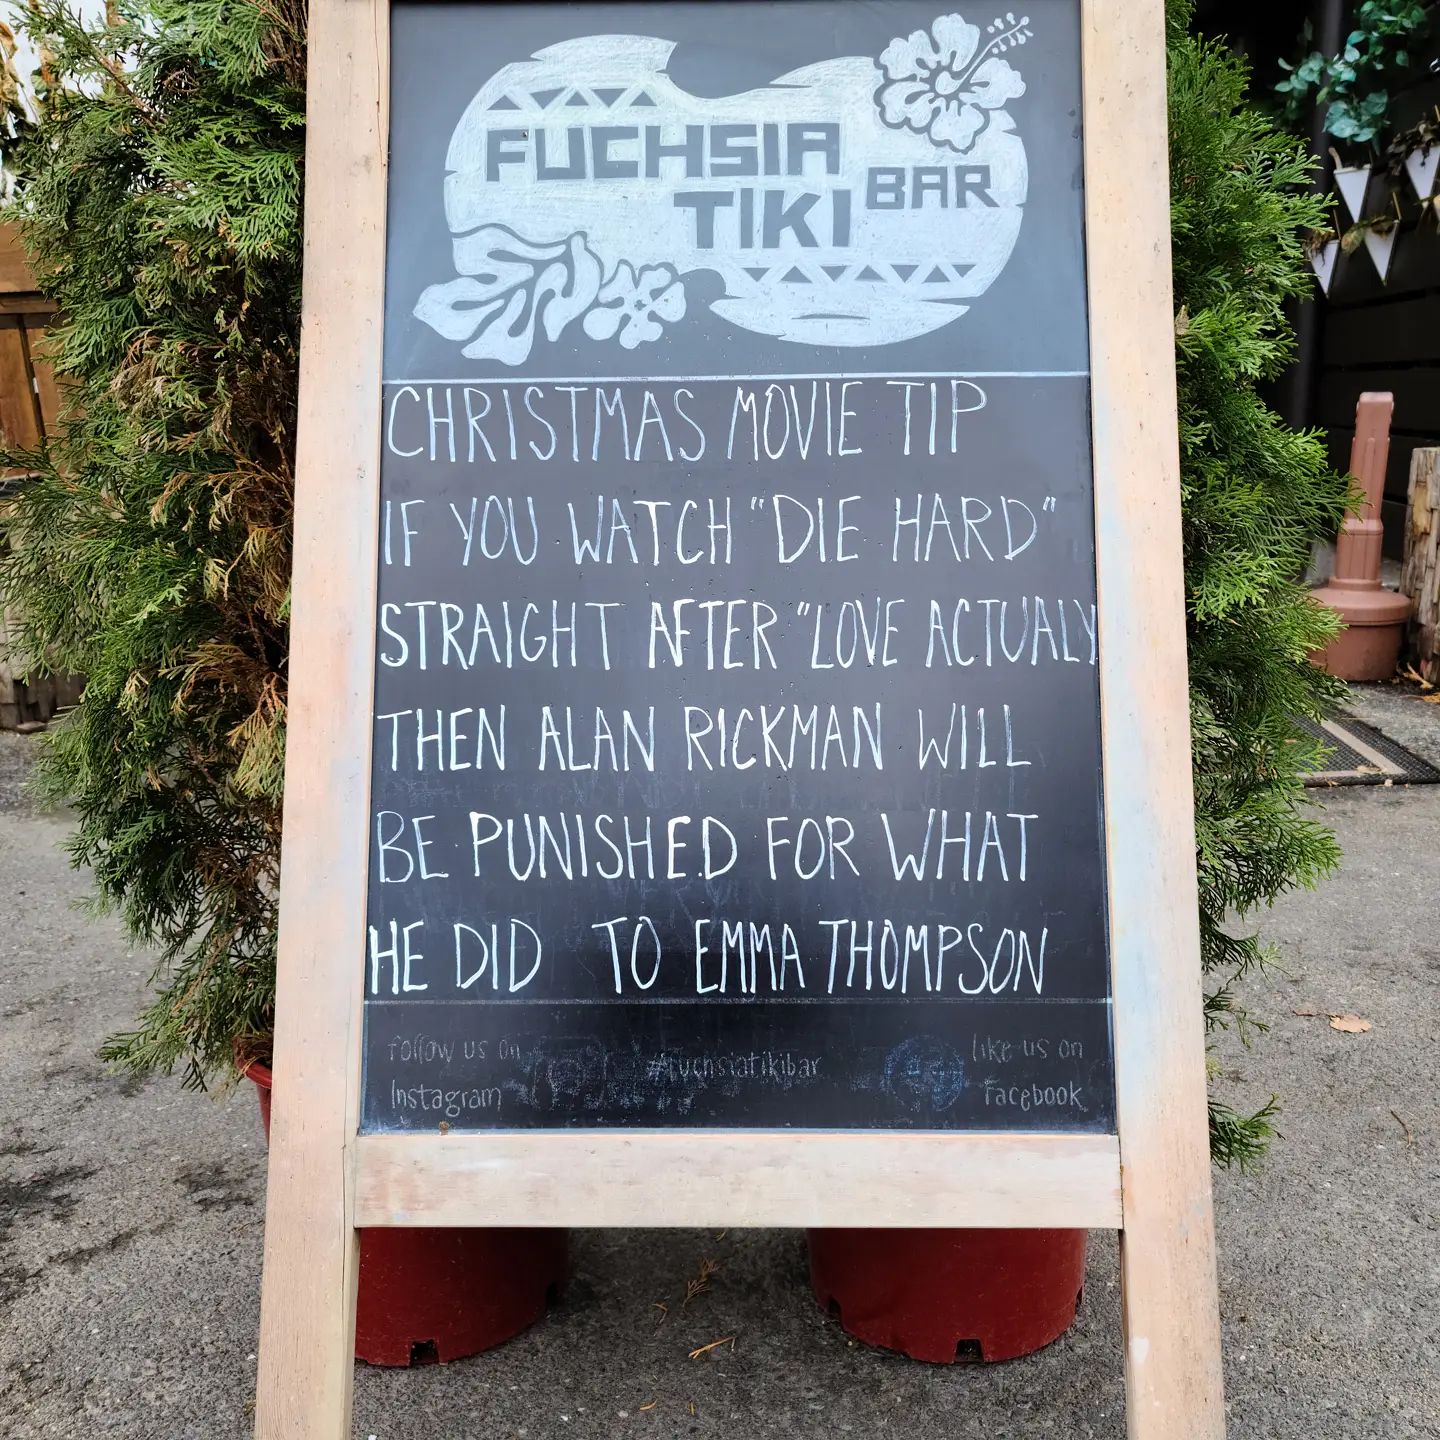 FUCHSIA
TIKI BAR
CHRISTMAS MOVIE TIP
IF YOU WATCH "DIE HARD"
STRAIGHT AFTER "LOVE ACTUALY
THEN ALAN RICKMAN WILL
BE PUNISHED FOR WHAT
HE DID TO EMMA THOMPSON
follow us on
Instagram
#fuchsiatikibar
like us on
Facebook